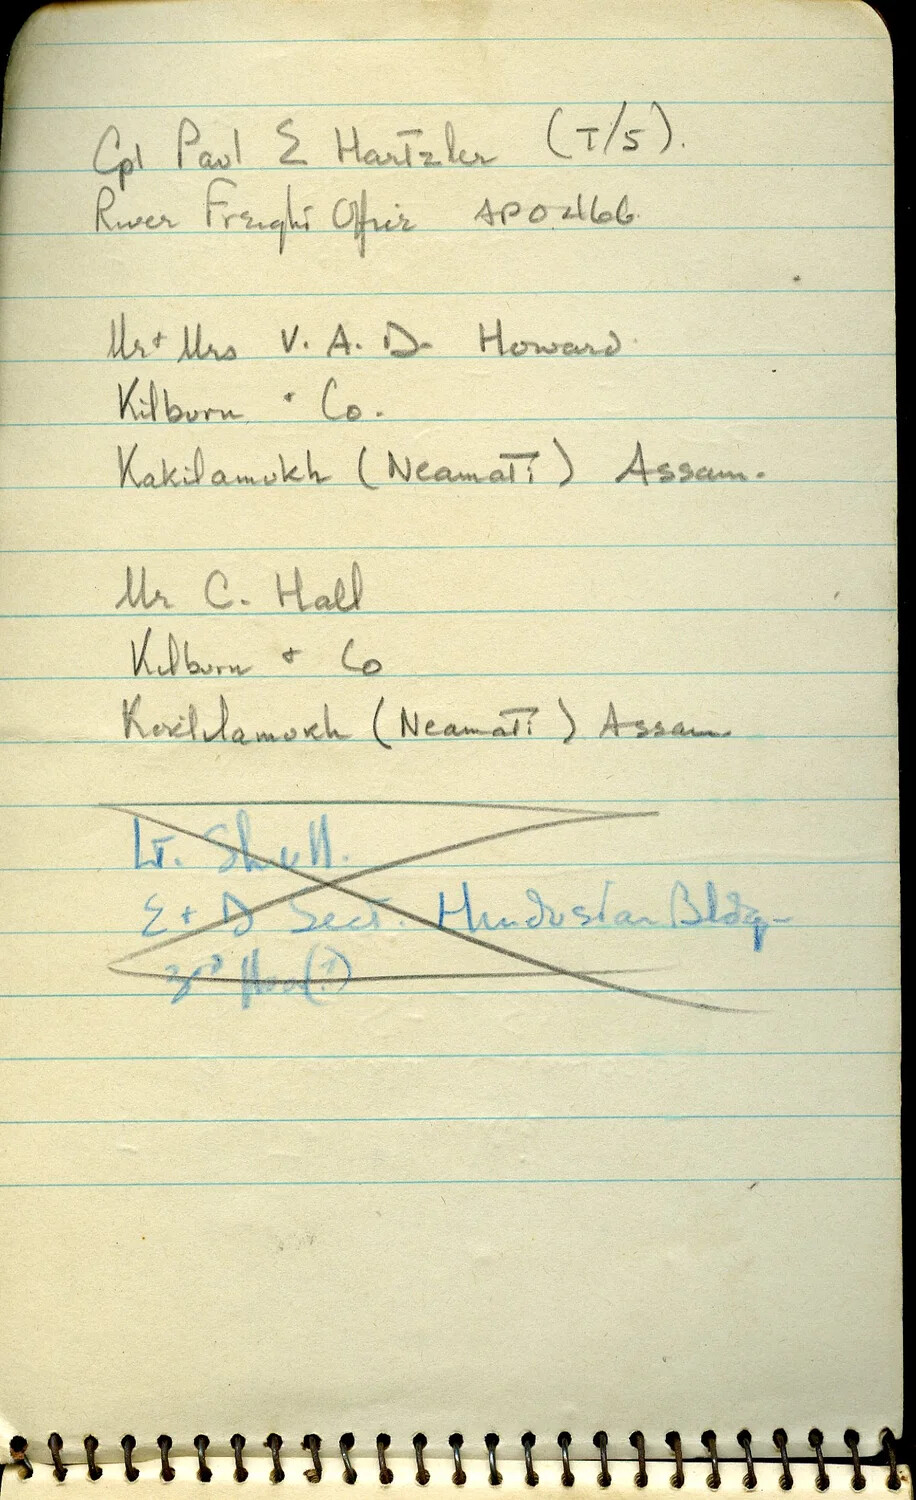 Cpl Paul E Hartzler (T/5).
River Freight Office APO 466
Mr + Mrs V. A. D. Howard
Kilburn + Co.
Kakilamukh (Neamati) Assam.
Mr C. Hall
Kilburn + Co
(Neamati) Assam
Lt. Shull.
E + D Sect. Hindustan Bldg-
3rd floor(?)